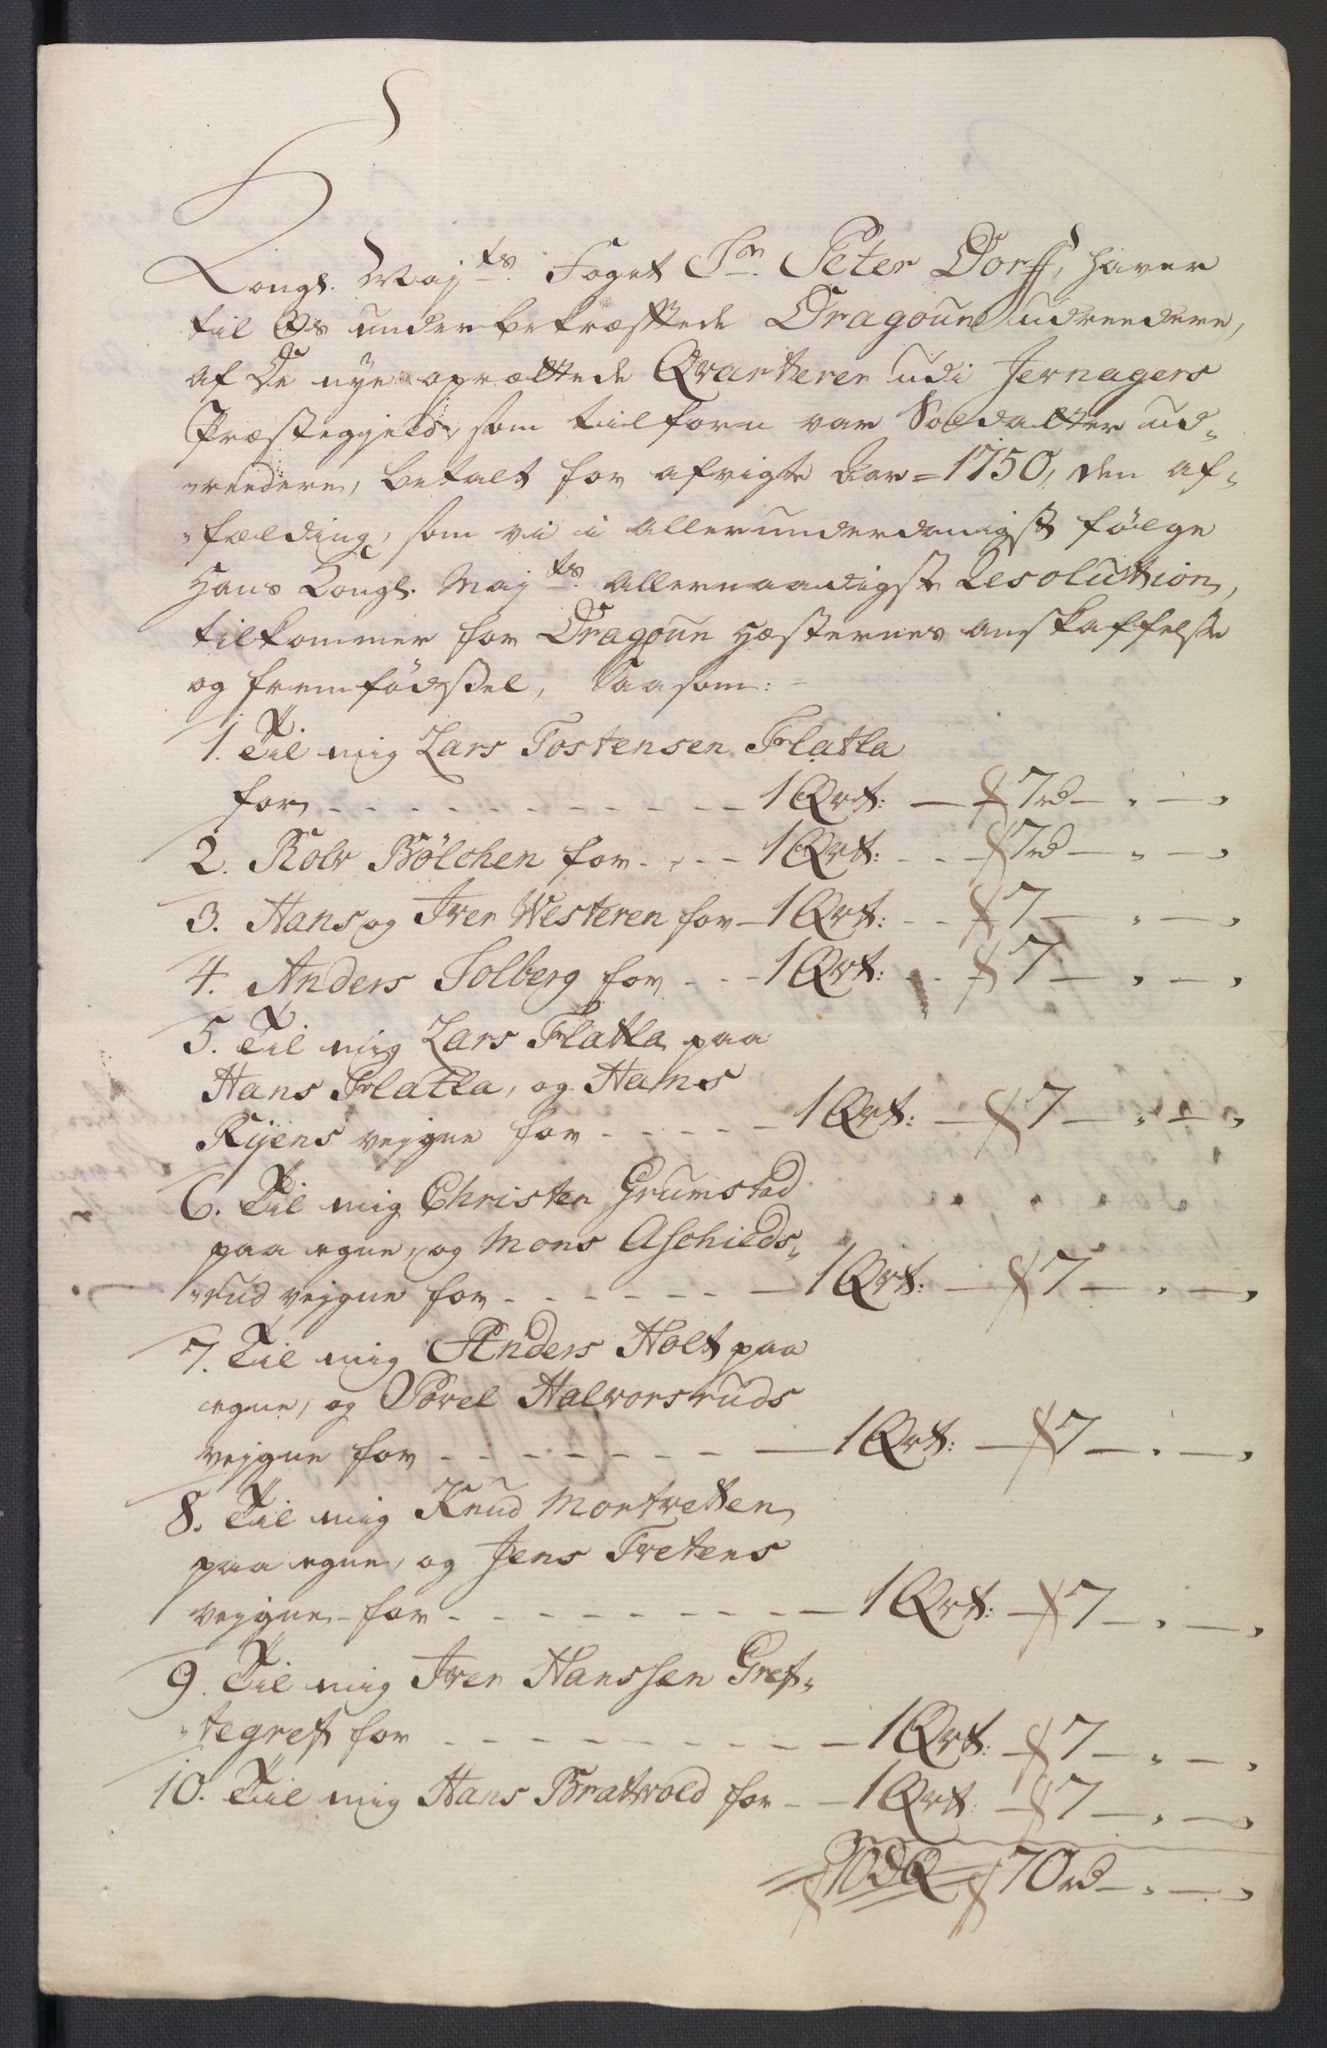 Kongl. Maj:ts Foget Sr. Peter Dorff, haver
til Os underbekræftede Dragoun udreedere,
af De nye oprættede Qvarterer udi Jernagers
Præstegjeld, som tilforn var Soldatter ud-
reedere, betalt for afvigte Aar 1750, den af-
fælding, som vi i allerunderdanigst følge
Hans Kongl. Maj:ts allernaadigste Resolution,
tilkommer for Dragoun Hæsternes anskaffelse
og fremfødsel, Saasom:
1. Til mig Lars Tostensen Flatla
for - - - 1 Qvt: - 7 rd - „ - „
2. Rolv Bølchen for - - - 1 Qvt: - - 7 rd - „ - „
3. Hans og Iver Westeren for - 1 Qvt: - - 7 - „ - „
4. Anders Solberg for - - - 1 Qvt: - - 7 - „ - „
5. Til mig Lars Flatla paa
Hans Flatla, og Hans
Ryens vejgne for - - - 1 Qvt: - 7 - „ - „
6. Til mig Christen Grumstad
paa egne, og Mons Aschields-
rud vejgne for - - - 1 Qvt: - 7 - „ - „
7. Til mig Anders Holt paa
egne, og Povel Halvorsruds
vejgne for - - - 1 Qvt: - 7 - „ - „
8. Til mig Knud Mortvetten
paa egne, og Jens Tvetens
vejgne for - - - 1 Qvt: - 7 - „ - „
9. Til mig Iver Hanssen Gref-
tegref for - - - 1 Qvt: - 7 - „ - „
10. Til mig Hans Bratvold for - - 1 Qvt: - 7 - „ - „
10 dQ 70 rd - „ - „